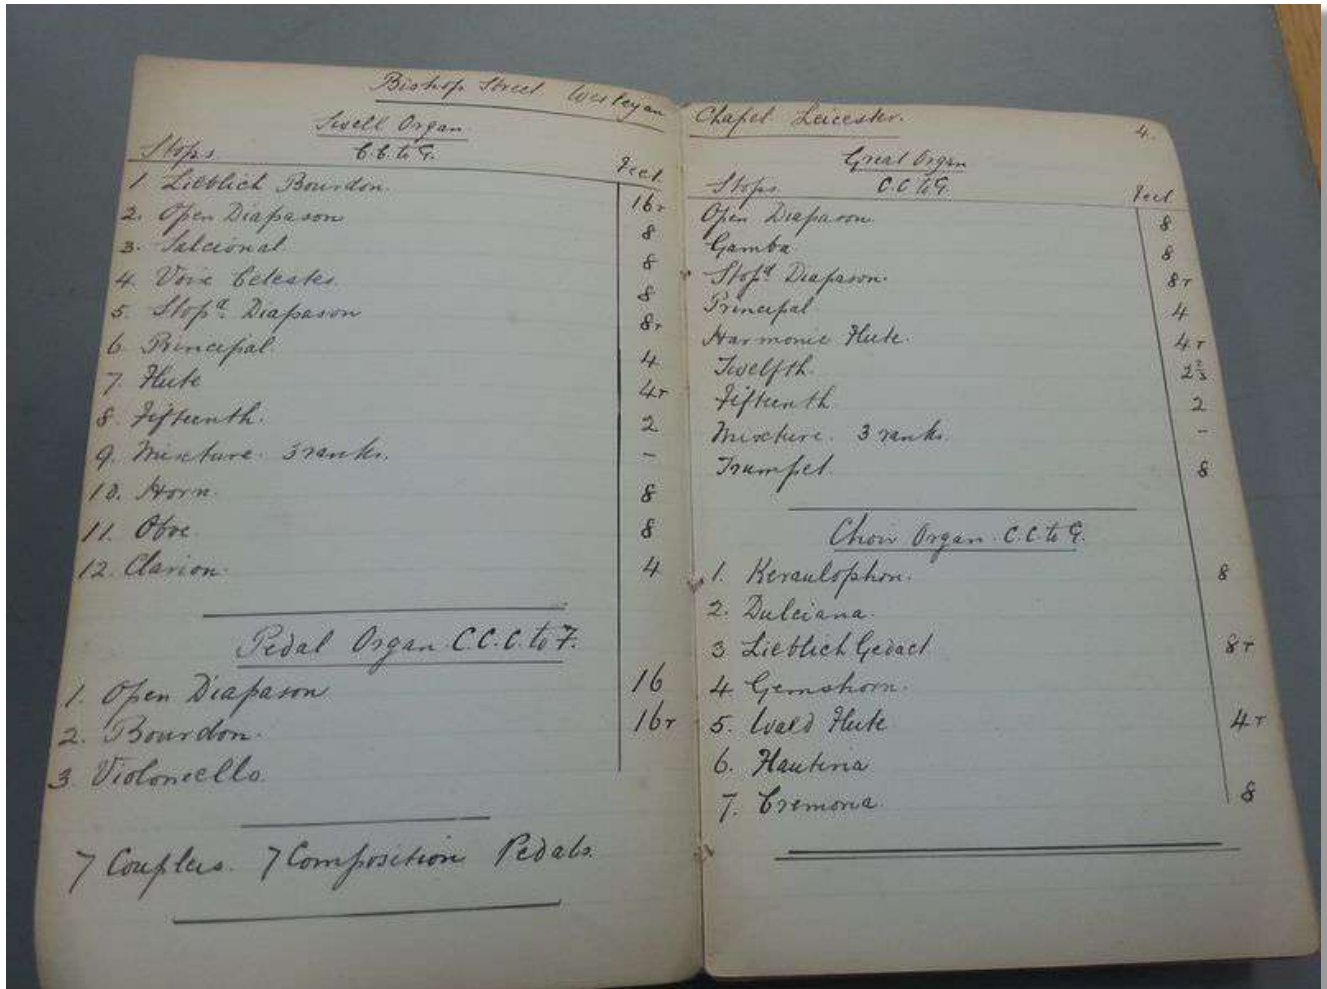 Bishop Street Wesleyan Chapel Leicester.
4.
Swell Organ
C.C. to G.
Stops Feet
1 Lieblich Bourdon. 16r
2. Open Diapason 8
3. Salcional 8
4. Voix Celestes. 8
5. Stopd. Diapason 8r
6. Principal. 4
7. Flute 4r
8. Fifteenth. 2
9. Mixture. 3 ranks. -
10. Horn. 8
11. Oboe. 8
12. Clarion. 4
Pedal Organ. C.C.C. to F.
1. Open Diapason 16
2. Bourdon. 16r
3. Violoncello.
7 Couplers. 7 Composition Pedals.
Great Organ
Stops C.C to G. Feet
Open Diapason 8
Gamba 8
Stopd Diapason. 8r
Principal 4
Harmonic Flute. 4r
Twelfth. 2 2/3
Fifteenth 2
Mixture. 3 ranks. -
Trumpet. 8
Choir Organ. C.C. to G.
1. Keraulophon. 8
2. Dulciana.
3. Lieblich Gedact 8r
4. Gemshorn.
5. Wald Flute 4r
6. Flautina
7. Cremona. 8